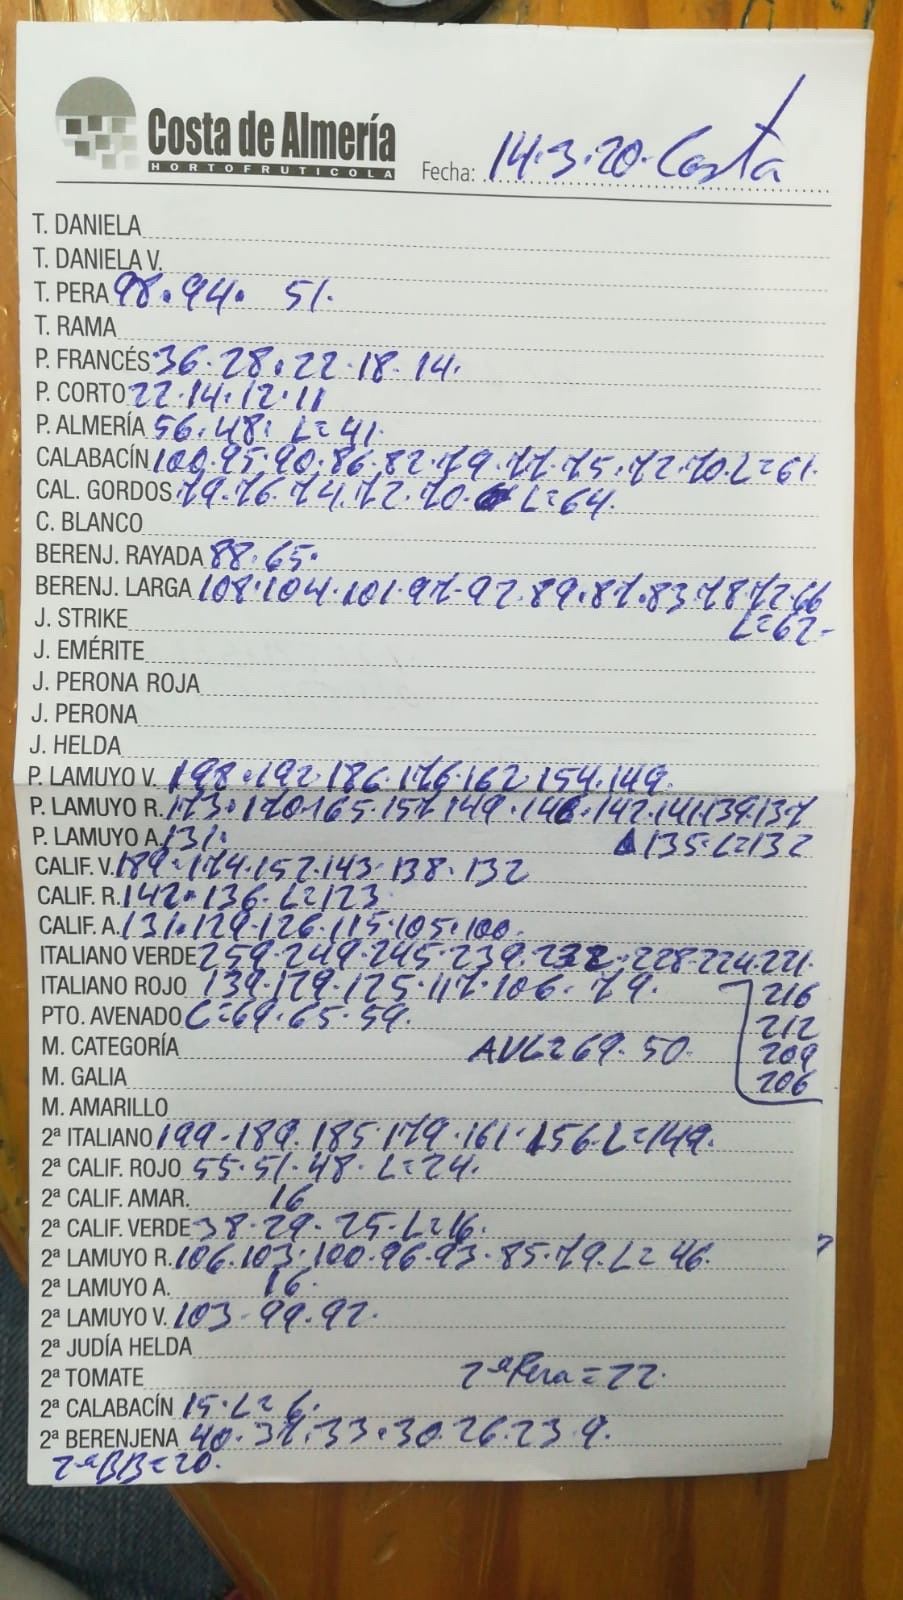 Costa de Almería
HORTOFRUTICOLA
Fecha: 14.3.20. Costa
T. DANIELA
T. DANIELA V.
T. PERA 98. 94. 51.
T. RAMA
P. FRANCÉS 36. 28. 22. 18. 14.
P. CORTO 22. 14. 12. 11
P. ALMERÍA 56. 48. L=41.
CALABACÍN 100. 95. 90. 86. 82. 79. 77. 75. 72. 70. L=61.
CAL. GORDOS 79. 76. 74. 72. 70. L=64.
C. BLANCO
BERENJ. RAYADA 88. 65.
BERENJ. LARGA 108. 104. 101. 97. 92. 89. 87. 83. 78. 72. 66
J. STRIKE L=62.
J. EMÉRITE
J. PERONA ROJA
J. PERONA
J. HELDA
P. LAMUYO V. 198. 192. 186. 176. 162 154. 149.
P. LAMUYO R. 173. 170. 165. 157. 149. 146. 142. 141. 139. 137
P. LAMUYO A. 131. 135. L=132
CALIF. V. 189. 174. 152. 143. 138. 132
CALIF. R. 142. 136. L=123
CALIF. A. 131. 129. 126. 115. 105. 100.
ITALIANO VERDE 259. 249. 245. 239. 232. 228. 224. 221.
ITALIANO ROJO 139. 129. 125. 117. 106. 79. 216
PTO. AVENADO C=69. 65. 59. 212
M. CATEGORÍA AVL=69. 50. 209
M. GALIA 206
M. AMARILLO
2ª ITALIANO 199. 189. 185. 179. 161. 156. L=149.
2ª CALIF. ROJO 55. 51. 48. L=24.
2ª CALIF. AMAR. 16
2ª CALIF. VERDE 38. 29. 25. L=16.
2ª LAMUYO R. 106. 103. 100. 96. 93. 85. 79. L=46.
2ª LAMUYO A. 16.
2ª LAMUYO V. 103. 99. 92.
2ª JUDÍA HELDA
2ª TOMATE 2ª Pera = 22.
2ª CALABACÍN 15. L=6.
2ª BERENJENA 40. 37. 33. 30. 26. 23. 9.
2ª BB=20.